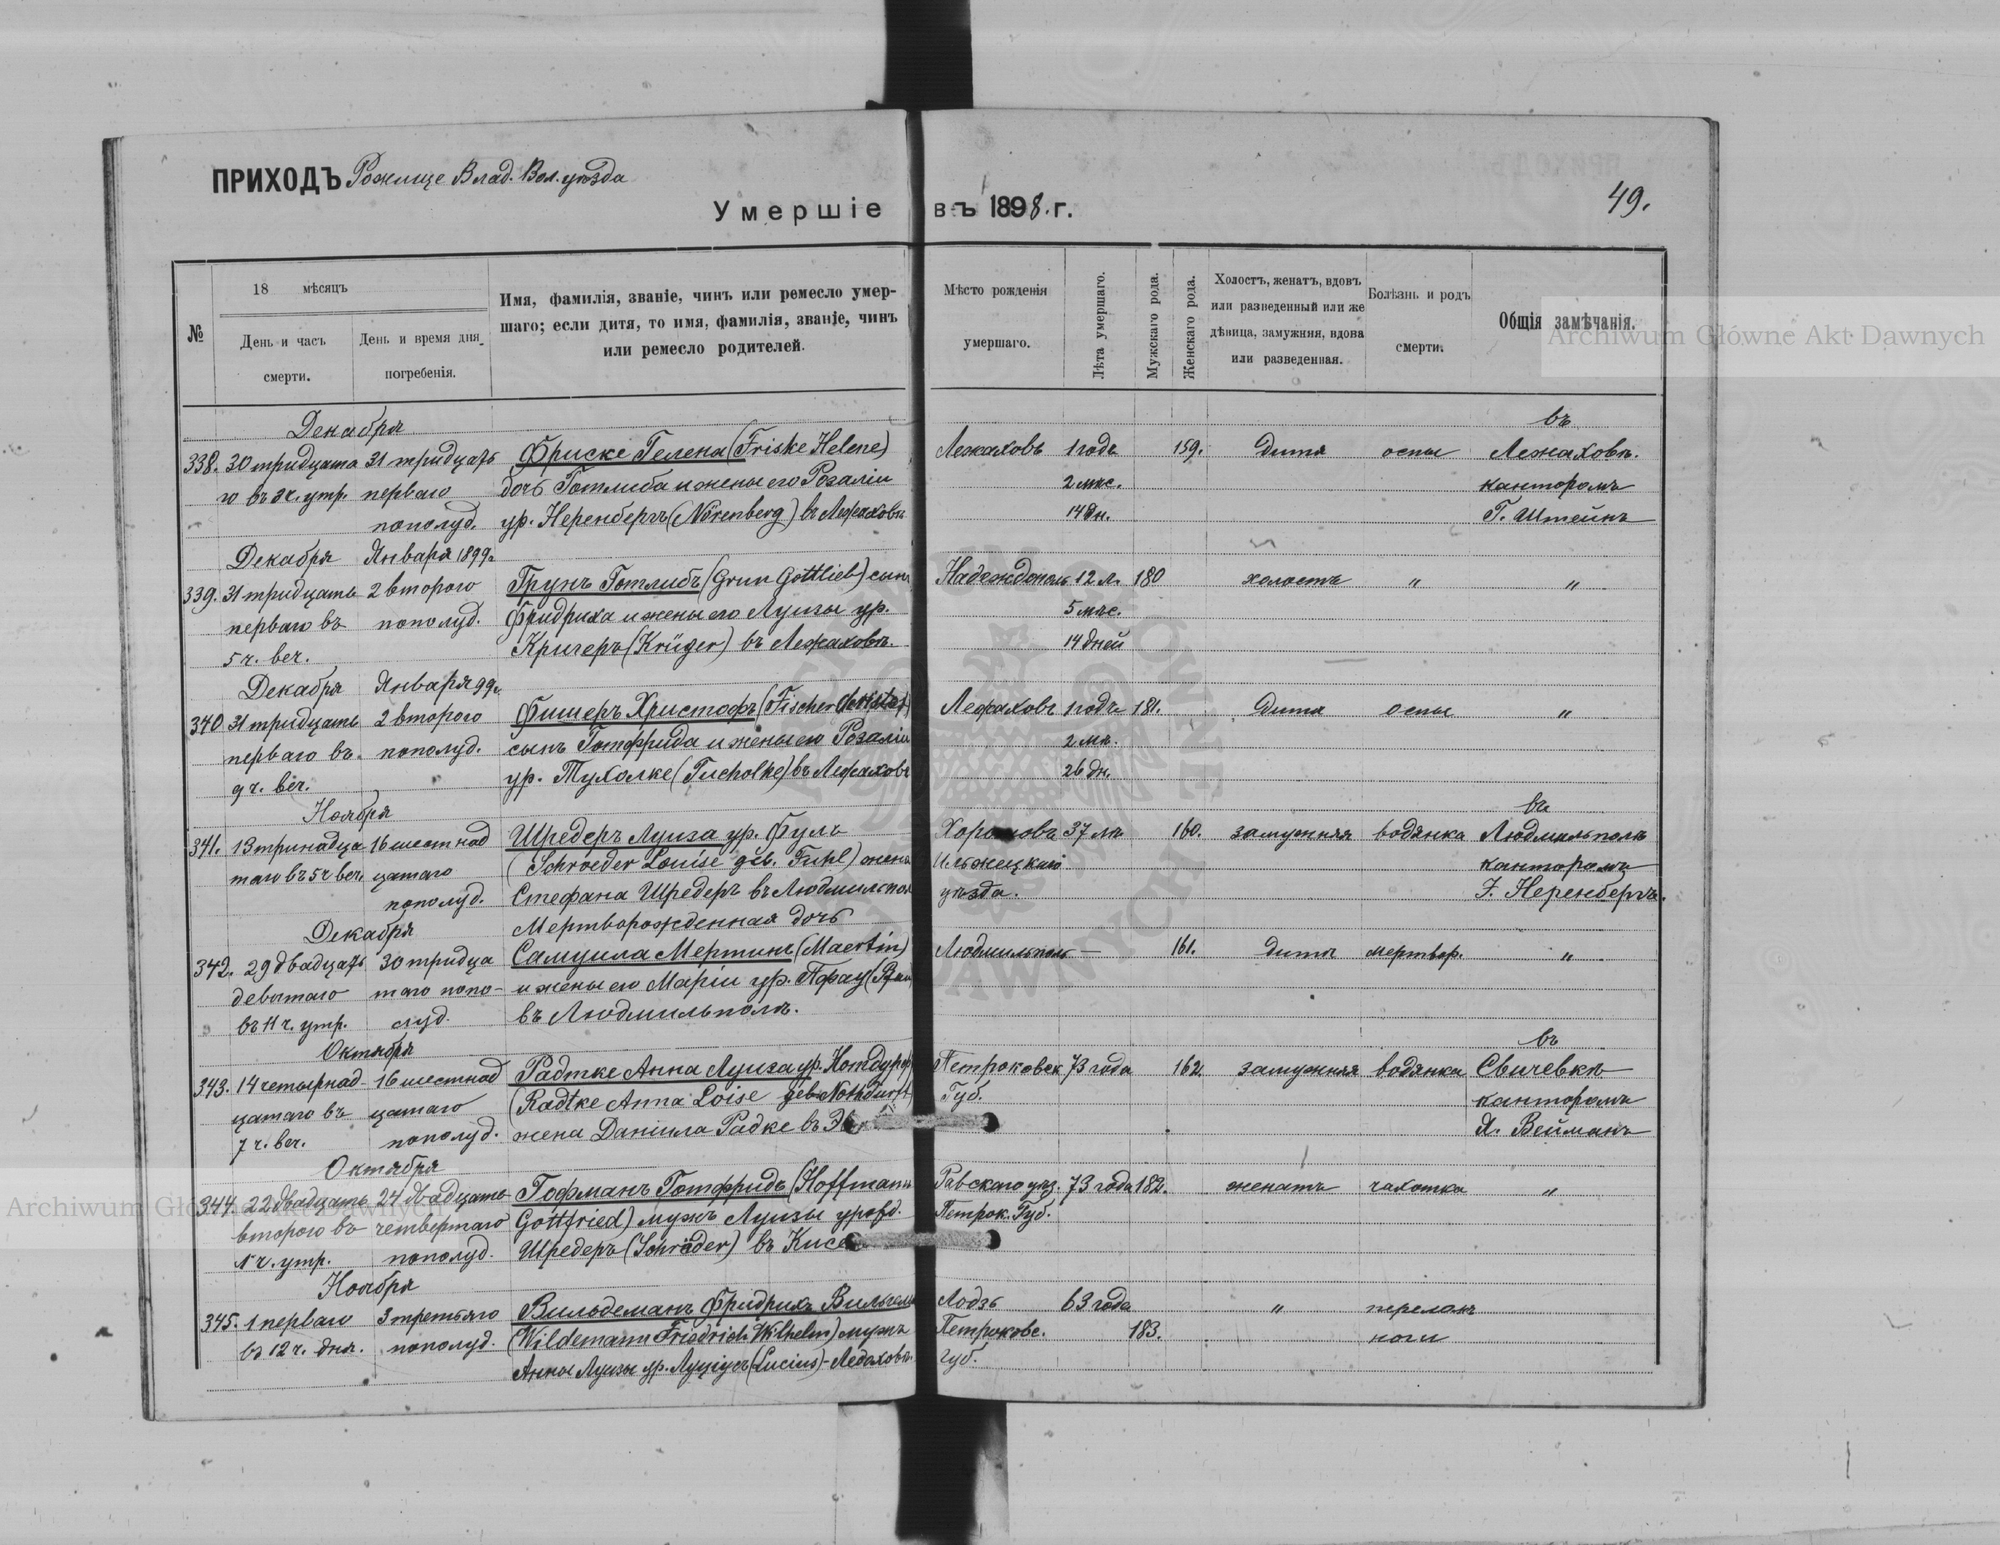 ПРИХОДЪ Рожище Влад. Вол. уѣзда
Умершіе въ 1898. г.
49.
№
18 мѣсяцъ
День и часъ смерти.
День и время дня погребенія.
Имя, фамилія, званіе, чинъ или ремесло умер-
шаго; если дитя, то имя, фамилія, званіе, чинъ
или ремесло родителей.
Мѣсто рожденія
умершаго.
Лѣта умершаго.
Мужскаго рода.
Женскаго рода.
Холостъ, женатъ, вдовъ
или разведенный или же
дѣвица, замужняя, вдова
или разведенная.
Болѣзнь и родъ
смерти.
Общія замѣчанія.
Archiwum Główne Akt Dawnych
Декабря въ
338. 30 тридцата 31 тридцать Фриске Гелена (Friske Helene) Лежаховъ 1 годъ 159. дитя оспы Лежаховѣ.
го въ 3 ч. утр. перваго дочь Готлиба и жены его Розаліи 2 мѣс. канторомъ
пополуд. ур. Неренбергъ (Nörenberg) въ Лежаховѣ 14 дн. Г. Штейнъ
Декабря Января 1899 г.
339. 31 тридцать 2 второго Грунъ Готлибъ (Grun Gottlieb) сынъ Надеждполь 12 л. 180 холостъ " "
перваго въ пополуд. Фридриха и жены его Луизы ур. 5 мѣс.
5 ч. веч. Кригеръ (Krüger) въ Лежаховѣ. 14 дней
Декабря Января 99 г.
340 31 тридцать 2 второго Фишеръ Христофъ (Fischer Christof) Лежаховъ 1 годъ 181. дитя оспы "
перваго въ пополуд. сынъ Готфрида и жены его Розаліи 2 мѣ.
9 ч. веч. ур. Тухолке (Tucholke) въ Лежаховѣ 26 дн.
Ноября въ
341. 13 тринадца 16 шестнад Шредеръ Луиза ур. Фуль 37 лѣ 160. замужняя водянка Людмильполѣ
таго въ 5 ч веч. цатаго (Schroeder Louise geb. Fuhl) жена Ильжецкій канторомъ
пополуд. Стефана Шредеръ въ Людмильпол уѣзда. F. Неренбергъ.
Декабря Мертворожденная дочь
342. 29 двадцать 30 тридца Самуила Мертинъ (Maertin) Людмильполь — 161. дитя мертвор. "
девятаго таго попо- и жены его Маріи ур. Пфау
въ 11 ч. утр. луд. въ Людмильполѣ.
Октября въ
343. 14 четырнад- 16 шестнад Радтке Анна Луиза ур. Нотдурфт Петроковск 73 года 162. замужняя водянка Свичевкѣ
цатаго въ цатаго (Radtke Anna Loise geb. Nothdurft) Губ. канторомъ
7 ч. веч. пополуд. жена Даніила Радке въ Я. Вейманъ
Октября
344. 22 двадцать 24 двадцать Гофманъ Готфридъ (Hoffmann Равскаго уѣз. 73 года 182. женатъ чахотка "
второго въ четвертаго Gottfried) мужъ Луизы урожд. Петрок. Губ.
1 ч. утр. пополуд. Шредеръ (Schröder) въ Кисе
Ноября
345. 1 перваго 3 третьяго Вильдеманъ Фридрихъ Вильгельм Лодзь 63 года " переломъ
въ 12 ч. дня. пополуд. (Wildemann Friedrich Wilhelm) мужъ Петроковс. 183. ноги
Анны Луизы ур. Луціусъ (Lucius) - Ледоховѣ. губ.
Archiwum Główne Akt Dawnych
Archiwum Główne Akt Dawnych